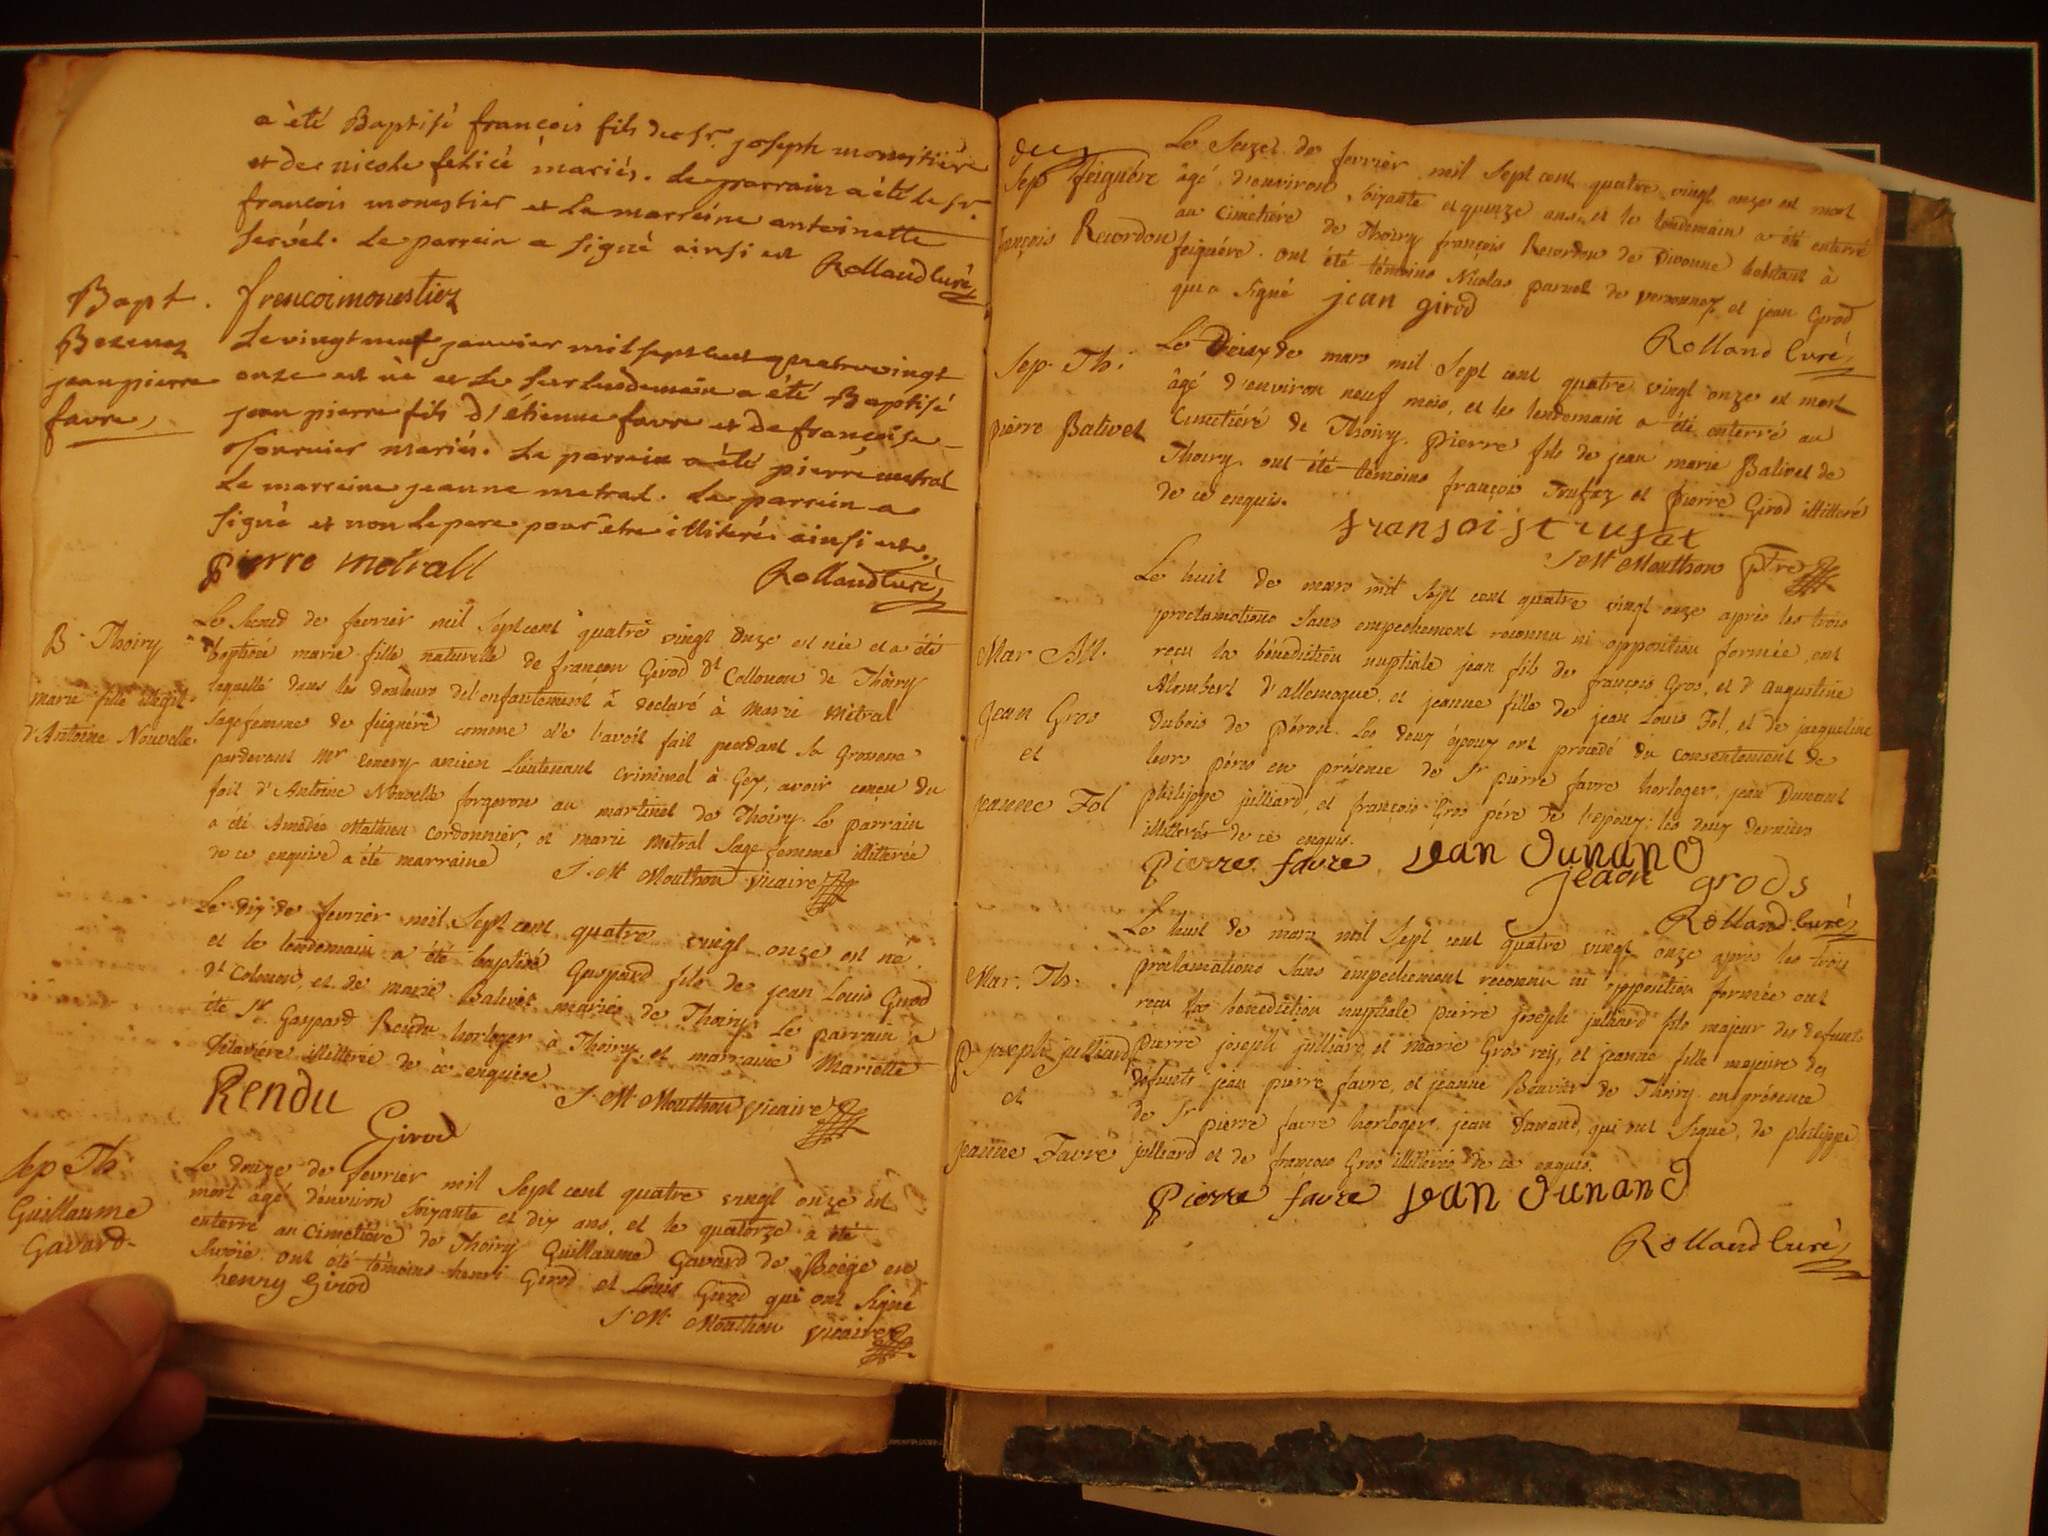 a èté Baptisé françois fils de sr. joseph monestiére
et de nicole felicé mariés. Le parrain a èté le sr.
françois monestier et la marreine antoinette
servél. Le parrein a signé ainsi est
Rolland Curé
françoi monestier
Bapt.
jean pierre
favre
Le vingt neuf janvier mil sept cent quatre vingt
onze est né et le lendemain a été Baptisé
jean pierre fils d'étienne favre et de françoise
Tournier mariés. Le parrein a été pierre metral
La marreine jeanne metral. Le parrein a
signé et non le pere pour être illiteré ainsi est.
pierre metrall
Rolland Curé
B. Thoiry
marie fille illegit.
d'Antoine Nouvelle.
Le second de fevrier mil sept cent quatre vingt onze est née et a été
baptisée marie fille naturelle de françon Girod dt Collouou de Thoiry
laquelle dans les douleurs de l'enfantement à declaré à Marie Métral
sagefemme de feignére comme elle l'avoit fait pendant sa grossesse
pardevant Mr Emery ancien Lieutenant Criminel à Gex, avoir conçu du
fait d'Antoine Nouvelle forgeron au martinet de Thoiry. Le parrain
a été Amédée Mathieu Cordonnier, et Marie Métral sage femme illitterée
de ce enquise a été marraine
J. M Mouthon vicaire
Le dix de fevrier mil sept cent quatre vingt onze est né
et le lendemain a été baptisé Gaspard fils de jean Louis Girod
dt Colouou, et de marie Balivet mariés de Thoiry. Le parrain a
été Sr Gaspard Rendu horloger à Thoiry, et marraine Mariette
illitterée de ce enquise
J. M. Mouthon vicaire
Rendu
Girod
Sep Th
Guillaume
Gavard
Le douze de fevrier mil sept cent quatre vingt onze est
mort âgé d'environ soixante et dix ans, et le quatorze a été
enterré au Cimetière de Thoiry Guillaume Gavard de Boëge en
Savoïe. ont été témoins henri Girod et Louis Girod qui ont signé
henry Girod
J. M. Mouthon vicaire
Sep feignére
françois Recordon
Le Seize de fevrier mil sept cent quatre vingt onze est mort
âgé d'environ soixante et quinze ans et le lendemain a été enterré
au Cimetière de Thoiry françois Recordon de Divonne habitant à
feignére. ont été témoins Nicolas parnet de vernonnex et jean Girod
qui a signé jean girod
Rolland Curé
Sep. Th.
pierre Balivet
Le Deux de mars mil sept cent quatre vingt onze est mort
âgé d'environ neuf mois, et le lendemain a été enterré au
Cimetiére de Thoiry, pierre fils de jean marie Balivet de
Thoiry ont été témoins françois Trufaz et pierre Girod illitteré
de ce enquis.
fransois trufat
J M Mouthon ptre
Mar All.
Jean Gros
et
jeanne Fol
Le huit de mars mil sept cent quatre vingt onze après les trois
proclamations sans empechement reconnu ni opposition formée, ont
reçu la bénédiction nuptiale jean fils de françois Gros, et d'augustine
Alombert d'allemogne, et jeanne fille de jean Louis Fol, et de jacqueline
Dubois de péron. Les deux époux ont procédé du consentement de
leurs pères en présence de Sr pierre favre horloger, jean Dunant
philippe julliard, et françois Gros père de l'epoux: les deux derniers
illitterés de ce enquis.
Pierre favre Jean Dunand
jean grods
Rolland Curé
Mar. Th.
p. joseph julliard
et
jeanne Favre
Le huit de mars mil sept cent quatre vingt onze après les trois
proclamations sans empechement reconnu ni opposition formée ont
reçu la bénédiction nuptiale pierre joseph julliard fils majeur des defunts
pierre joseph julliard, et marie Gros rey, et jeanne fille majeure des
defunts jean pierre favre, et jeanne Bouvier de Thoiry en présence
de Sr pierre favre horloger, jean Dunand, qui ont signé, de philippe
julliard et de françois Gros illitterés de ce enquis.
Pierre favre Jean Dunand
Rolland Curé